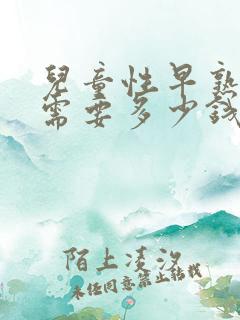 兒童性早熟
需要多少錢
陌上凌汐
未经同意禁止转载